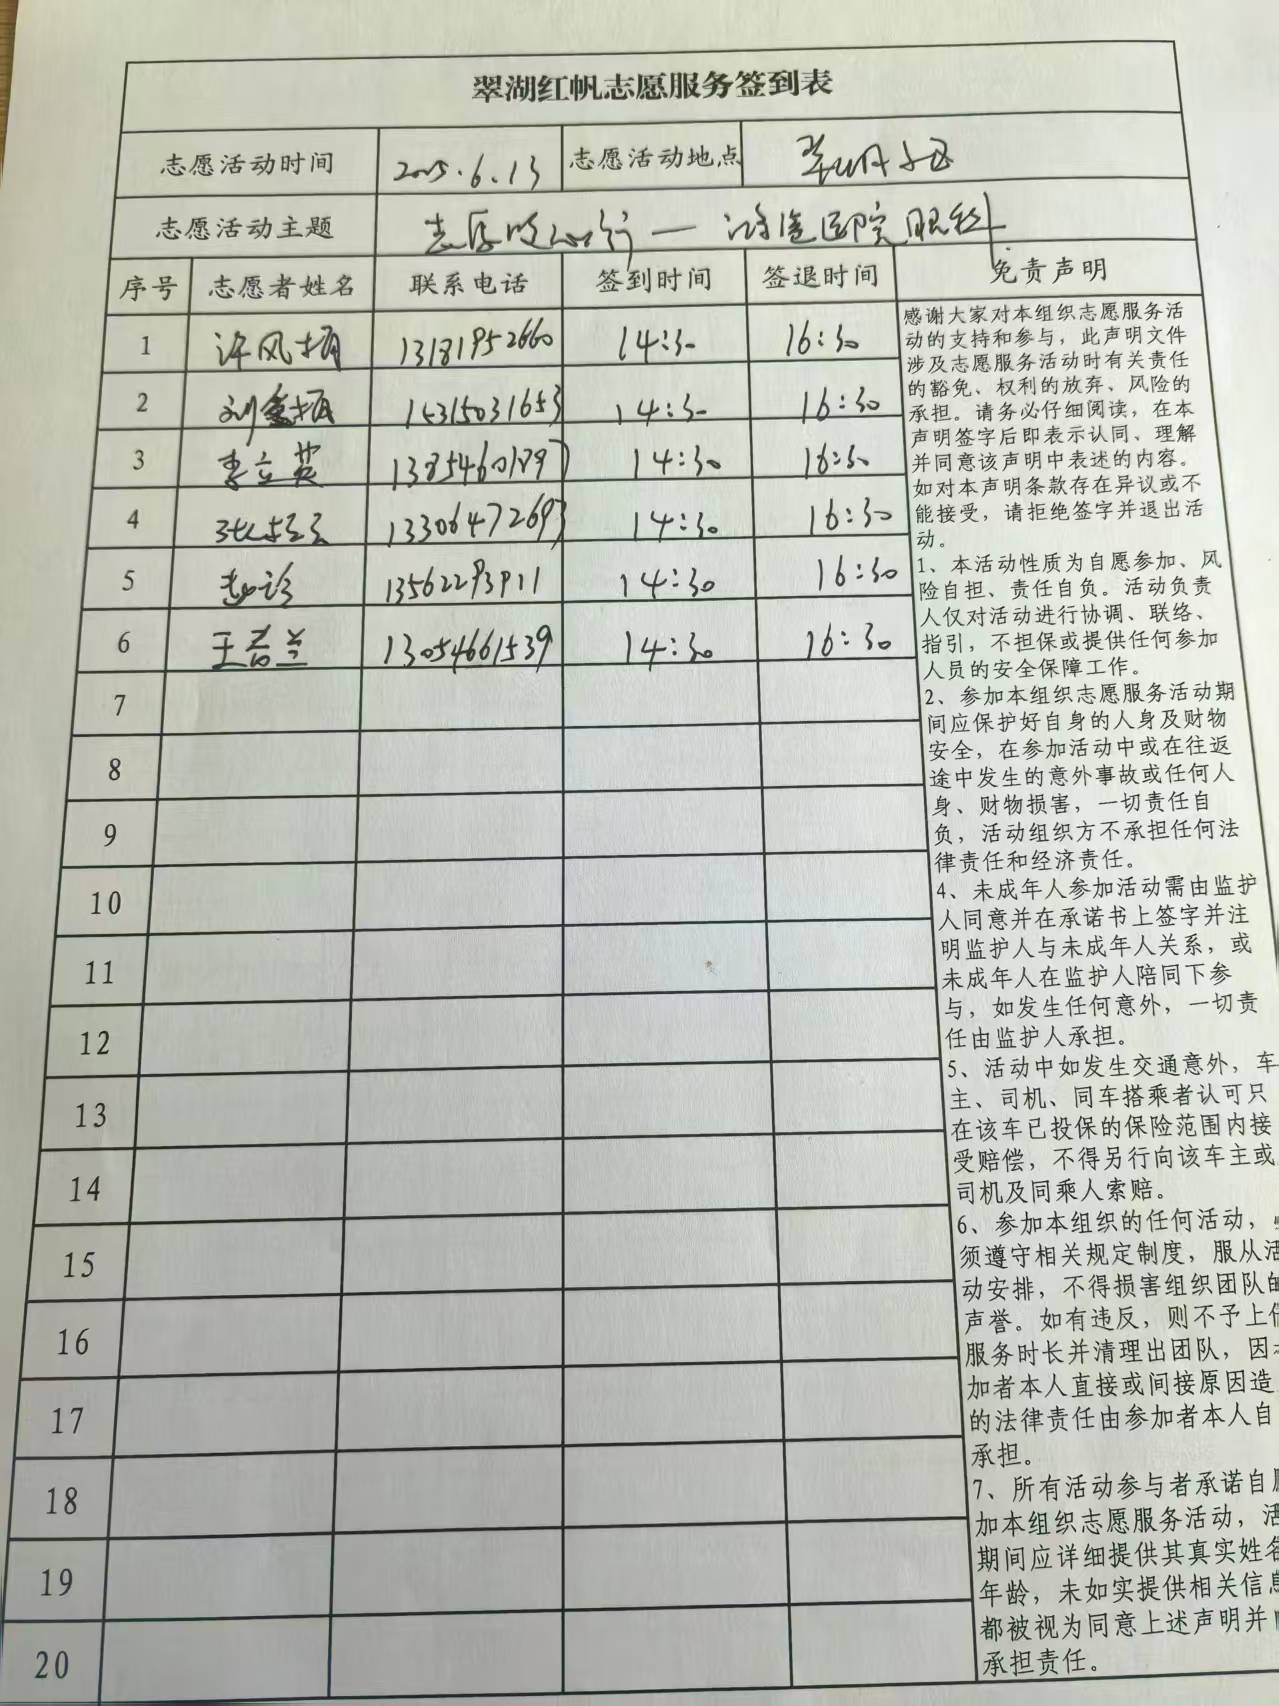 翠湖红帆志愿服务签到表
志愿活动时间 2025.6.13 志愿活动地点 翠湖小区
志愿活动主题 志愿 行一 医院眼科
序号 志愿者姓名 联系电话 签到时间 签退时间 免责声明
1 许风梅 13181952660 14:30 16:30
2 刘 梅 15315031653 14:30 16:30
3 李立英 13854601897 14:30 16:30
4 13306472693 14:30 16:30
5 赵珍 13562293911 14:30 16:30
6 王春兰 13054661539 14:30 16:30
7
8
9
10
11
12
13
14
15
16
17
18
19
20
感谢大家对本组织志愿服务活
动的支持和参与，此声明文件
涉及志愿服务活动时有关责任
的豁免、权利的放弃、风险的
承担。请务必仔细阅读，在本
声明签字后即表示认同、理解
并同意该声明中表述的内容。
如对本声明条款存在异议或不
能接受，请拒绝签字并退出活
动。
1、本活动性质为自愿参加、风
险自担、责任自负。活动负责
人仅对活动进行协调、联络、
指引，不担保或提供任何参加
人员的安全保障工作。
2、参加本组织志愿服务活动期
间应保护好自身的人身及财物
安全，在参加活动中或在往返
途中发生的意外事故或任何人
身、财物损害，一切责任自
负，活动组织方不承担任何法
律责任和经济责任。
4、未成年人参加活动需由监护
人同意并在承诺书上签字并注
明监护人与未成年人关系，或
未成年人在监护人陪同下参
与，如发生任何意外，一切责
任由监护人承担。
5、活动中如发生交通意外，车
主、司机、同车搭乘者认可只
在该车已投保的保险范围内接
受赔偿，不得另行向该车主或
司机及同乘人索赔。
6、参加本组织的任何活动，
须遵守相关规定制度，服从活
动安排，不得损害组织团队的
声誉。如有违反，则不予上传
服务时长并清理出团队，因
加者本人直接或间接原因造
的法律责任由参加者本人自
承担。
7、所有活动参与者承诺自愿
加本组织志愿服务活动，活
期间应详细提供其真实姓名
年龄，未如实提供相关信息
都被视为同意上述声明并
承担责任。